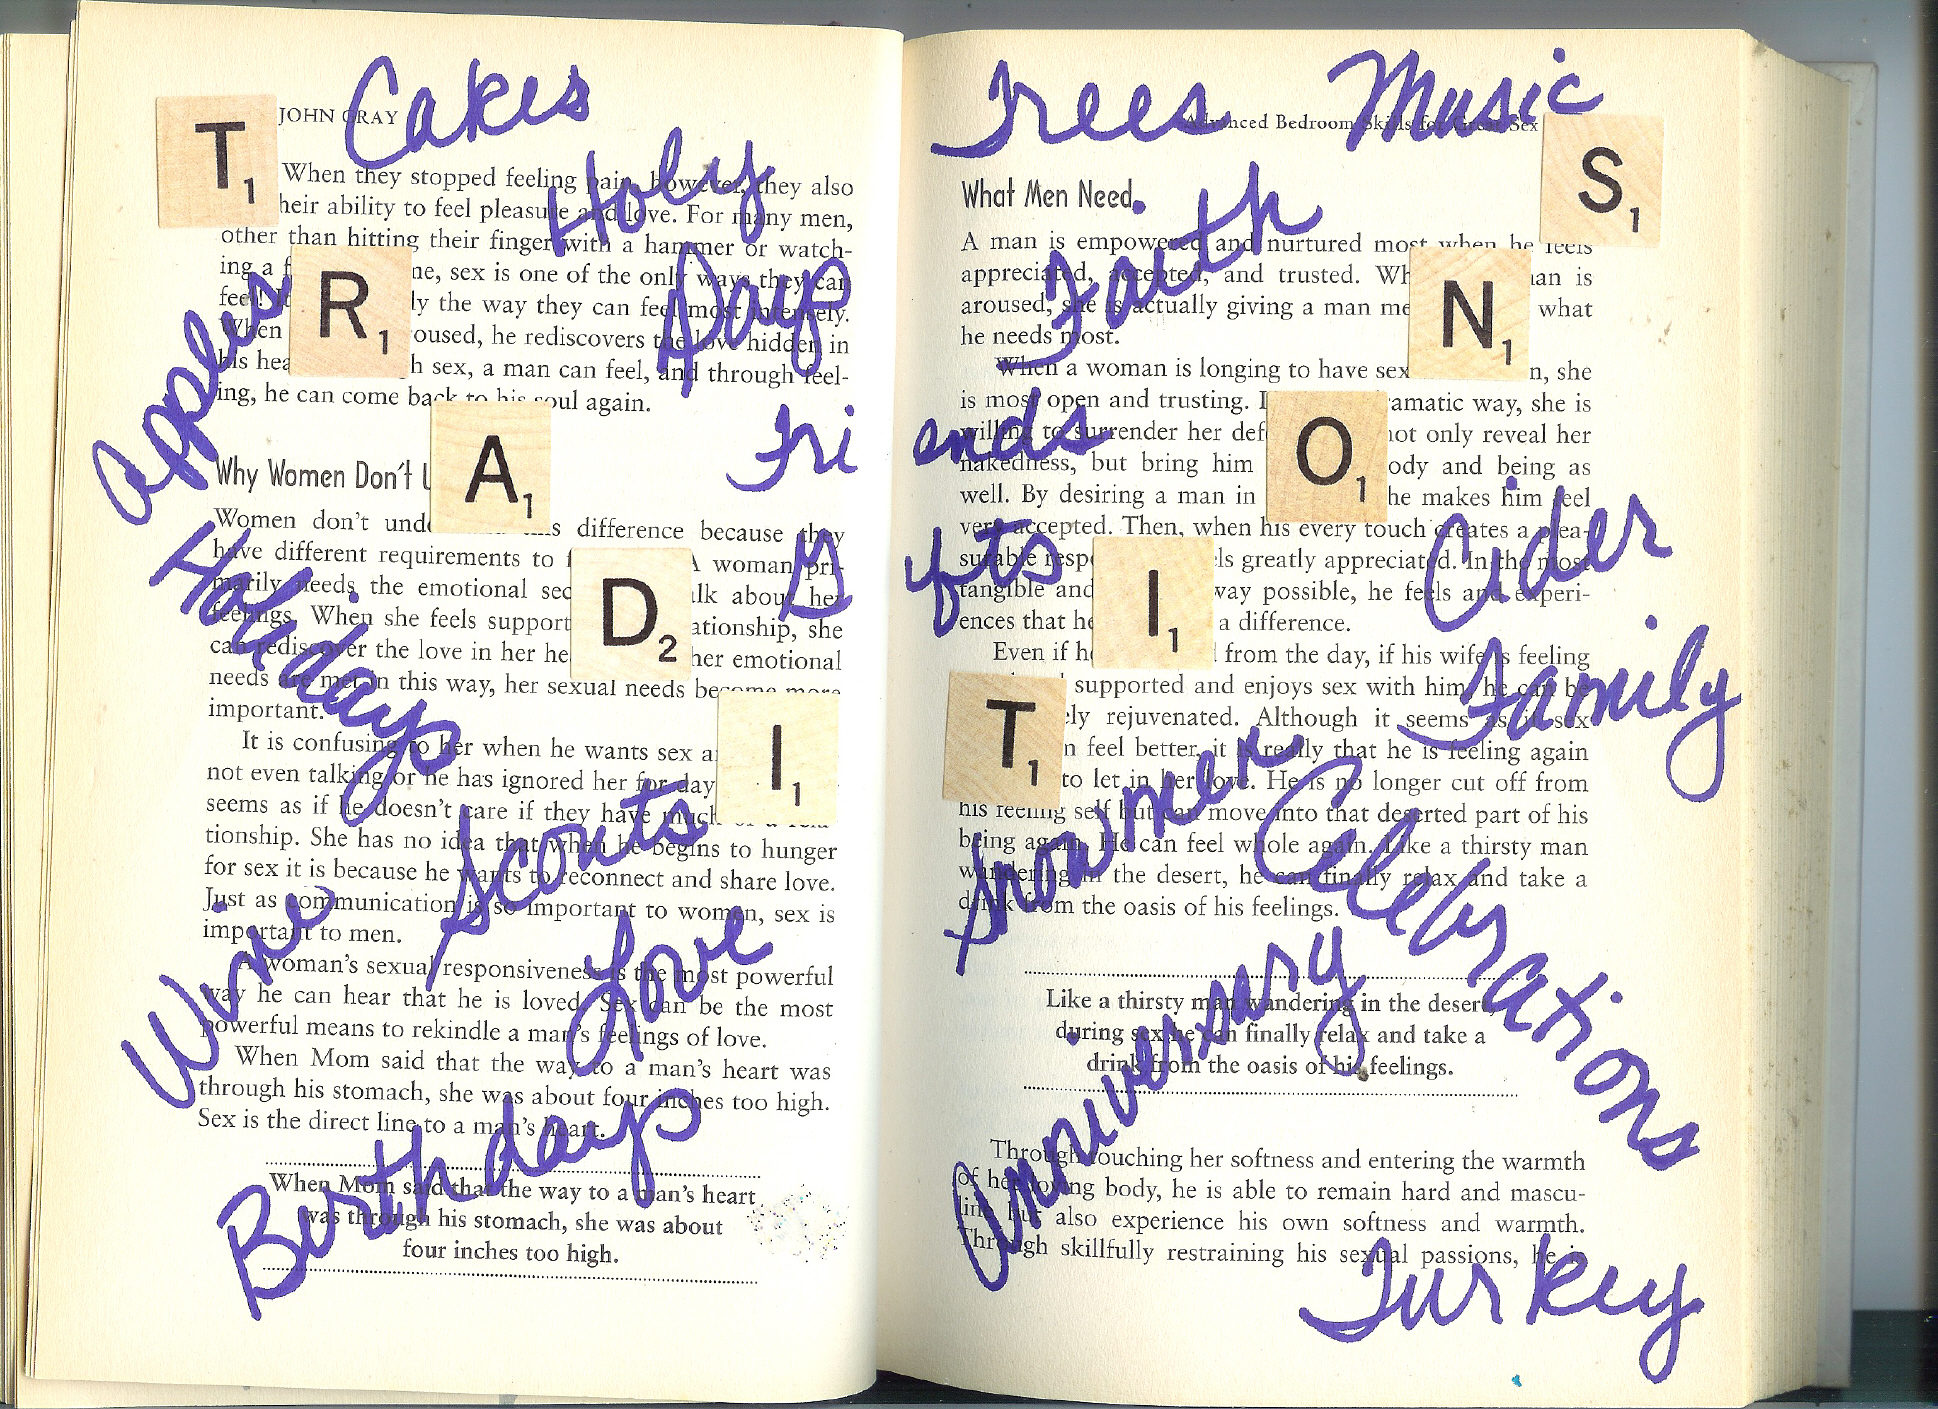 Cakes
JOHN GRAY
T1
When they stopped feeling pain, however, they also
their ability to feel pleasure and love. For many men,
other than hitting their finger with a hammer or watch-
ing a f me, sex is one of the only ways they can
feel! ly the way they can feel most intensely.
When oused, he rediscovers the love hidden in
his hea h sex, a man can feel, and through feel-
ing, he can come back to his soul again.
Holy
Days
Apples
R1
A1
Fri
Why Women Don't U
Women don't unde s difference because they
have different requirements to f A woman pri-
marily needs the emotional sec lk about her
feelings. When she feels support ationship, she
can rediscover the love in her he her emotional
needs are met in this way, her sexual needs become more
important.
D2
G
Holidays
I1
It is confusing to her when he wants sex a
not even talking or he has ignored her for day
seems as if he doesn't care if they have much of a rela-
tionship. She has no idea that when he begins to hunger
for sex it is because he wants to reconnect and share love.
Just as communication is so important to women, sex is
important to men.
Scouts
Wine
Love
A woman's sexual responsiveness is the most powerful
way he can hear that he is loved. Sex can be the most
powerful means to rekindle a man's feelings of love.
When Mom said that the way to a man's heart was
through his stomach, she was about four inches too high.
Sex is the direct line to a man's heart.
Birthdays
When Mom said that the way to a man's heart
was through his stomach, she was about
four inches too high.
Trees Music
Advanced Bedroom Skills for Great Sex
S1
What Men Need
Faith
A man is empowered and nurtured most when he feels
appreciated, accepted, and trusted. Wh an is
aroused, she is actually giving a man me what
he needs most.
N1
When a woman is longing to have sex n, she
is most open and trusting. I ramatic way, she is
willing to surrender her def not only reveal her
nakedness, but bring him ody and being as
well. By desiring a man in he makes him feel
very accepted. Then, when his every touch creates a plea-
surable resp ls greatly appreciated. In the most
tangible and way possible, he feels and experi-
ences that he a difference.
ends
O1
Cider
ifts
I1
Even if h from the day, if his wife is feeling
supported and enjoys sex with him, he can be
ely rejuvenated. Although it seems as if sex
n feel better, it is really that he is feeling again
to let in her love. He is no longer cut off from
his feeling self but can move into that deserted part of his
being again. He can feel whole again. Like a thirsty man
wandering in the desert, he can finally relax and take a
drink from the oasis of his feelings.
Family
T1
Snowmen
Celebrations
Like a thirsty man wandering in the desert,
during sex he can finally relax and take a
drink from the oasis of his feelings.
Anniversary
Through touching her softness and entering the warmth
of her loving body, he is able to remain hard and mascu-
line but also experience his own softness and warmth.
Through skillfully restraining his sexual passions, he is
Turkey